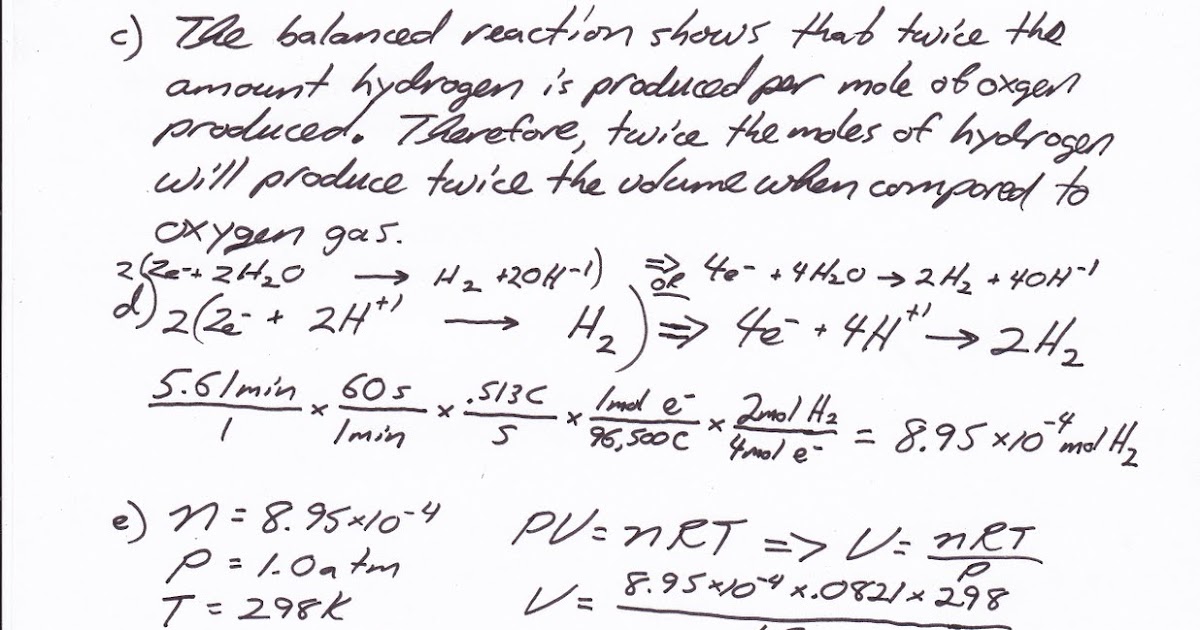 c) The balanced reaction shows that twice the
amount hydrogen is produced per mole of oxgen
produced. Therefore, twice the moles of hydrogen
will produce twice the volume when compared to
oxygen gas.
2(2e⁻ + 2H₂O → H₂ + 2OH⁻¹) ⇒ OR 4e⁻ + 4H₂O → 2H₂ + 4OH⁻¹
d) 2(2e⁻ + 2H⁺¹ → H₂) ⇒ 4e⁻ + 4H⁺¹ → 2H₂
5.61min/1 × 60s/1min × .513C/s × 1mol e⁻/96,500C × 2mol H₂/4mol e⁻ = 8.95 × 10⁻⁴ mol H₂
e) n = 8.95×10⁻⁴ PV = nRT => V = nRT/P
P = 1.0atm
T = 298K V = 8.95×10⁻⁴ × .0821 × 298